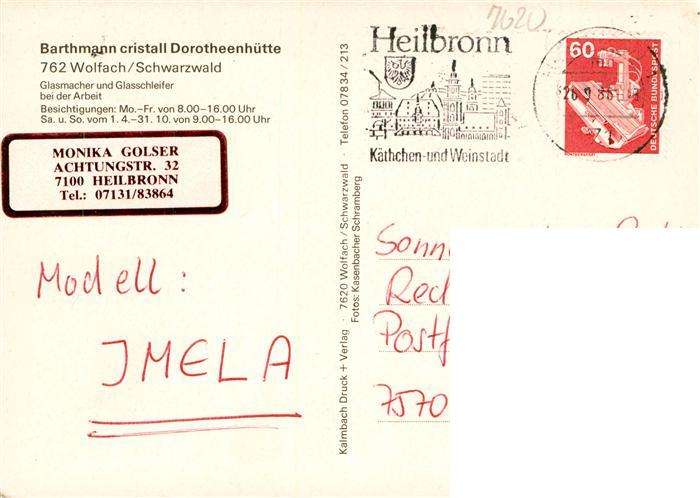 Barthmann cristall Dorotheenhütte
762 Wolfach/Schwarzwald
Glasmacher und Glasschleifer
bei der Arbeit
Besichtigungen: Mo.–Fr. von 8.00–16.00 Uhr
Sa. u. So. vom 1. 4.–31. 10. von 9.00–16.00 Uhr
MONIKA GOLSER
ACHTUNGSTR. 32
7100 HEILBRONN
Tel.: 07131/83864
Modell:
JMELA
Kalmbach Druck + Verlag · 7620 Wolfach/Schwarzwald · Telefon 07834/213
Fotos: Kasenbacher Schramberg
7620
Heilbronn
Käthchen- und Weinstadt
60
DEUTSCHE BUNDESPOST
Sonn
Red
Postf
7570